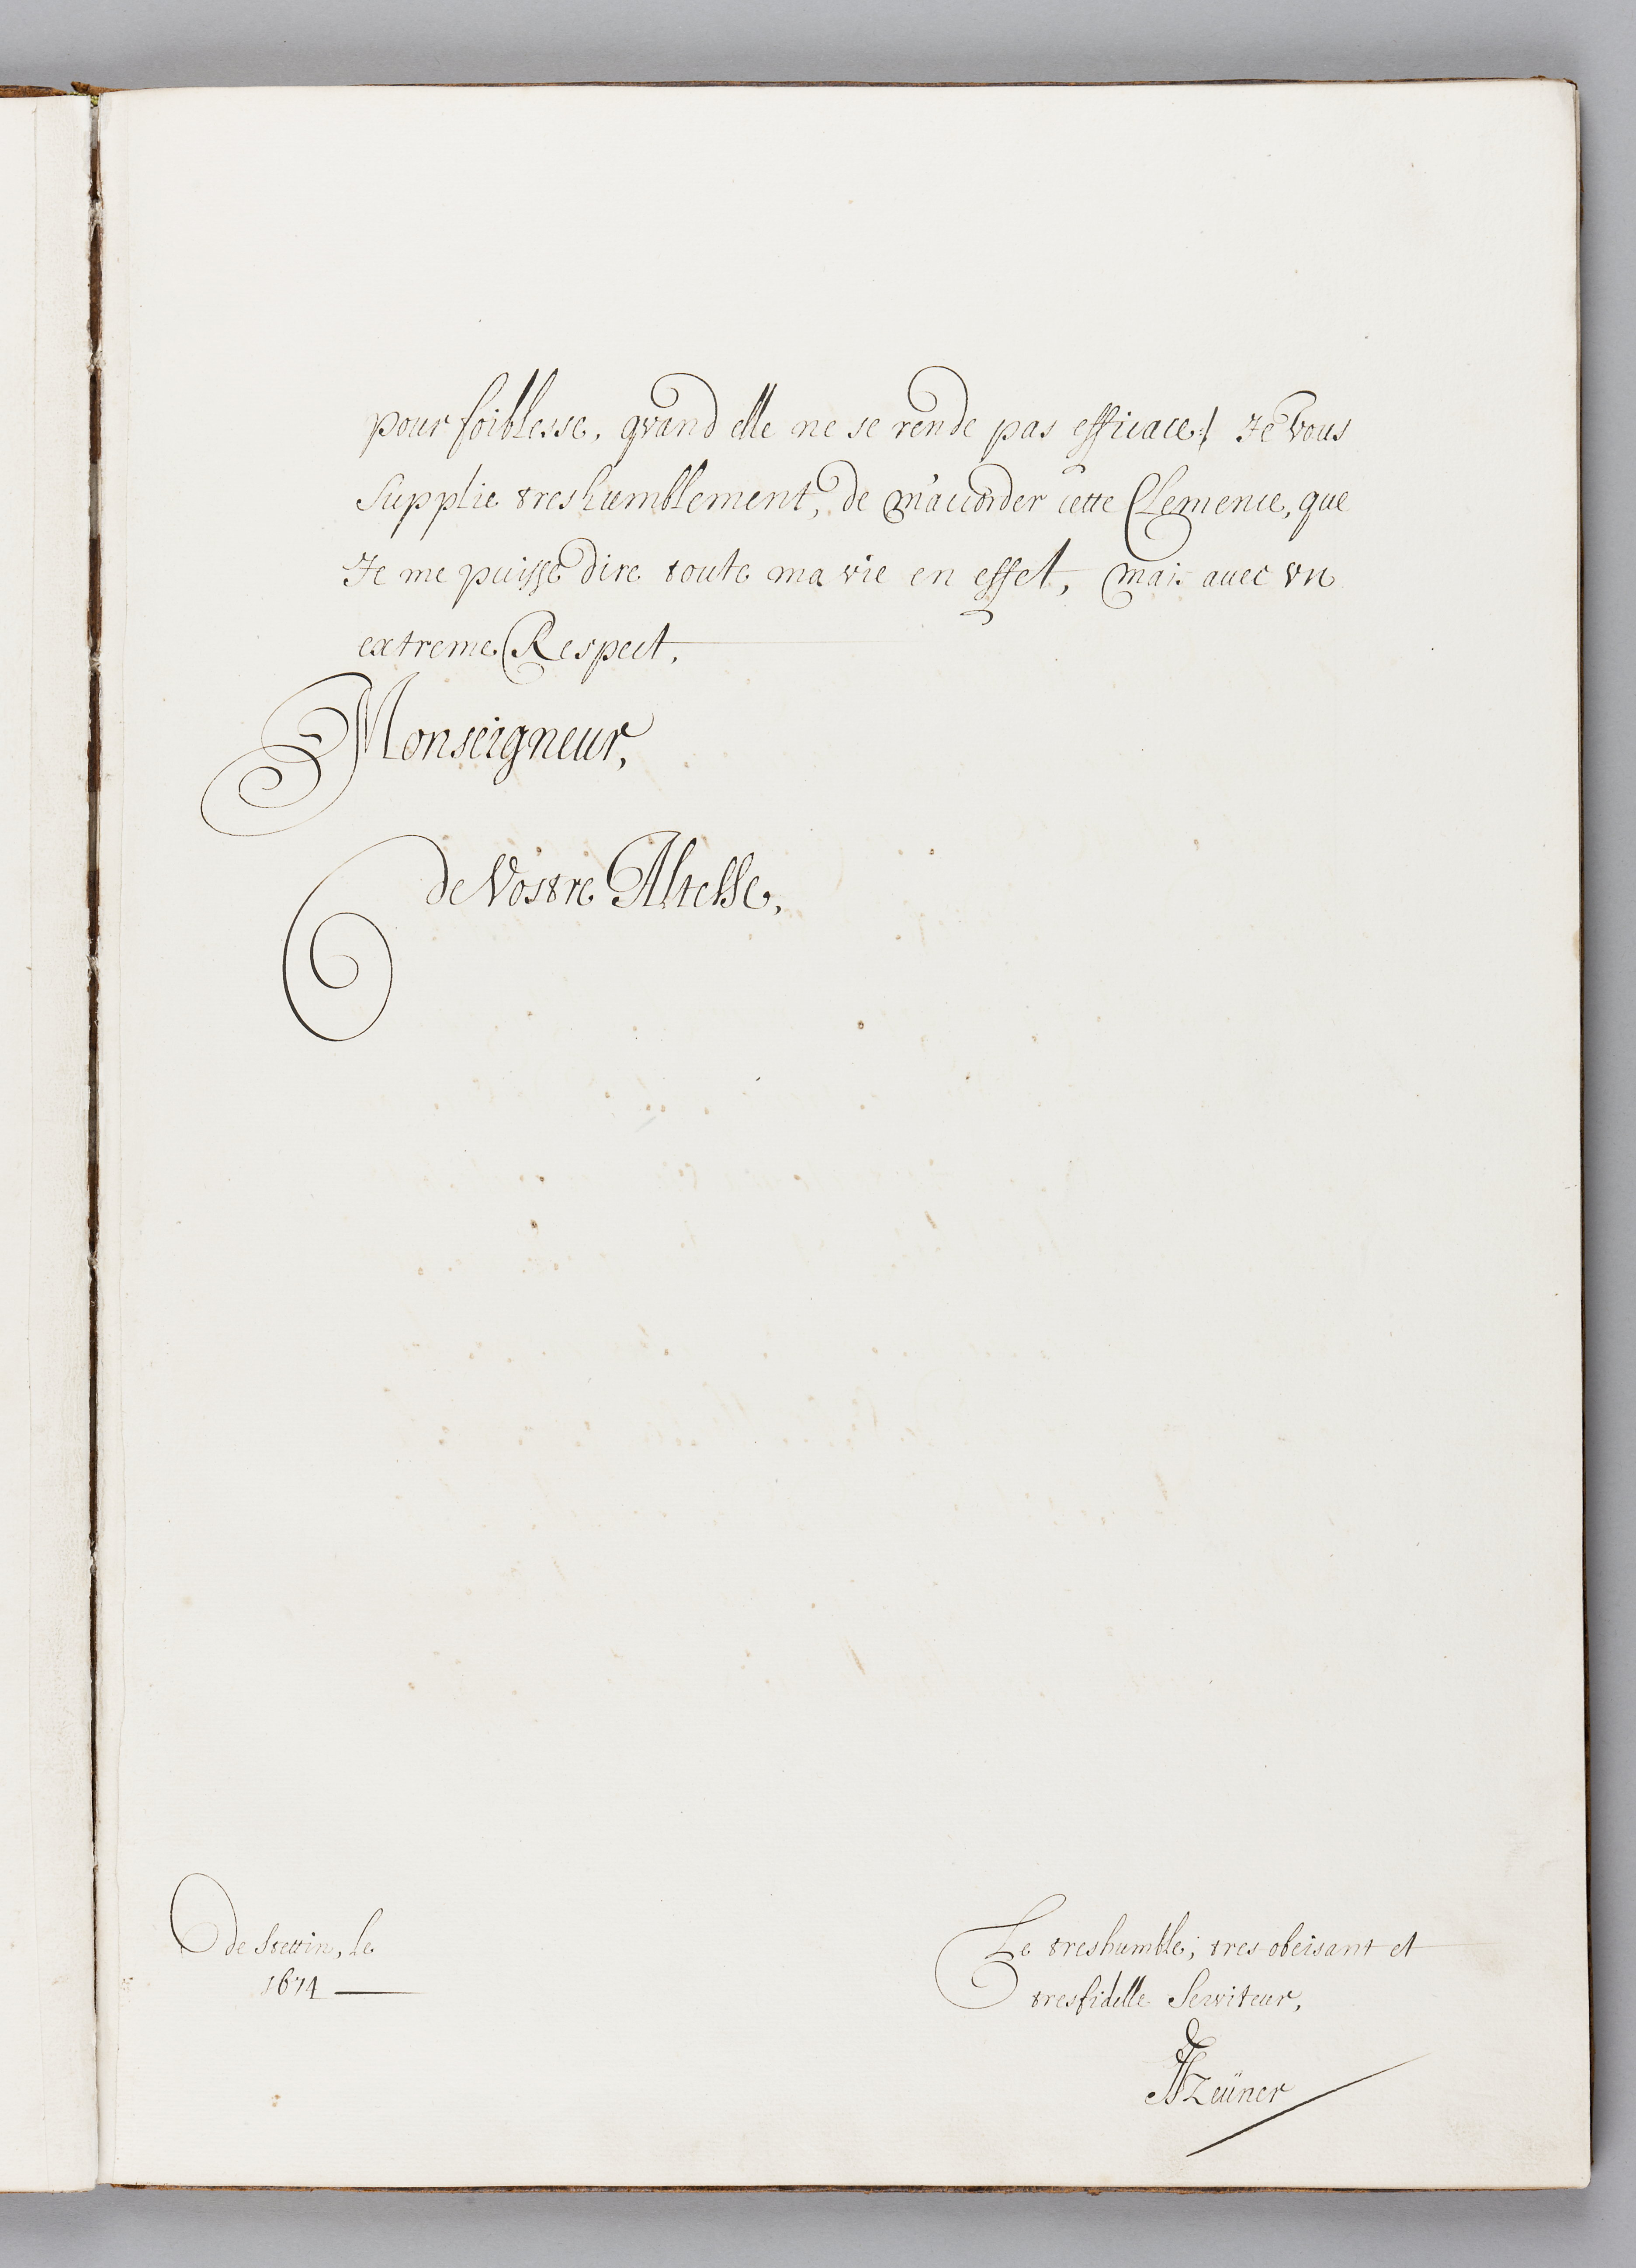 pour foiblesse, qvand elle ne se rende pas efficace! Je vous
Supplie treshumblement, de m'accorder cette Clemence, que
Je me puisse dire toute ma vie en effet, mais auec vn
extreme Respect,
Monseigneur,
de Vostre Altesse,
de Stettin, le
1674
Le treshumble, tres obeisant et
tresfidelle Serviteur,
Zeüner